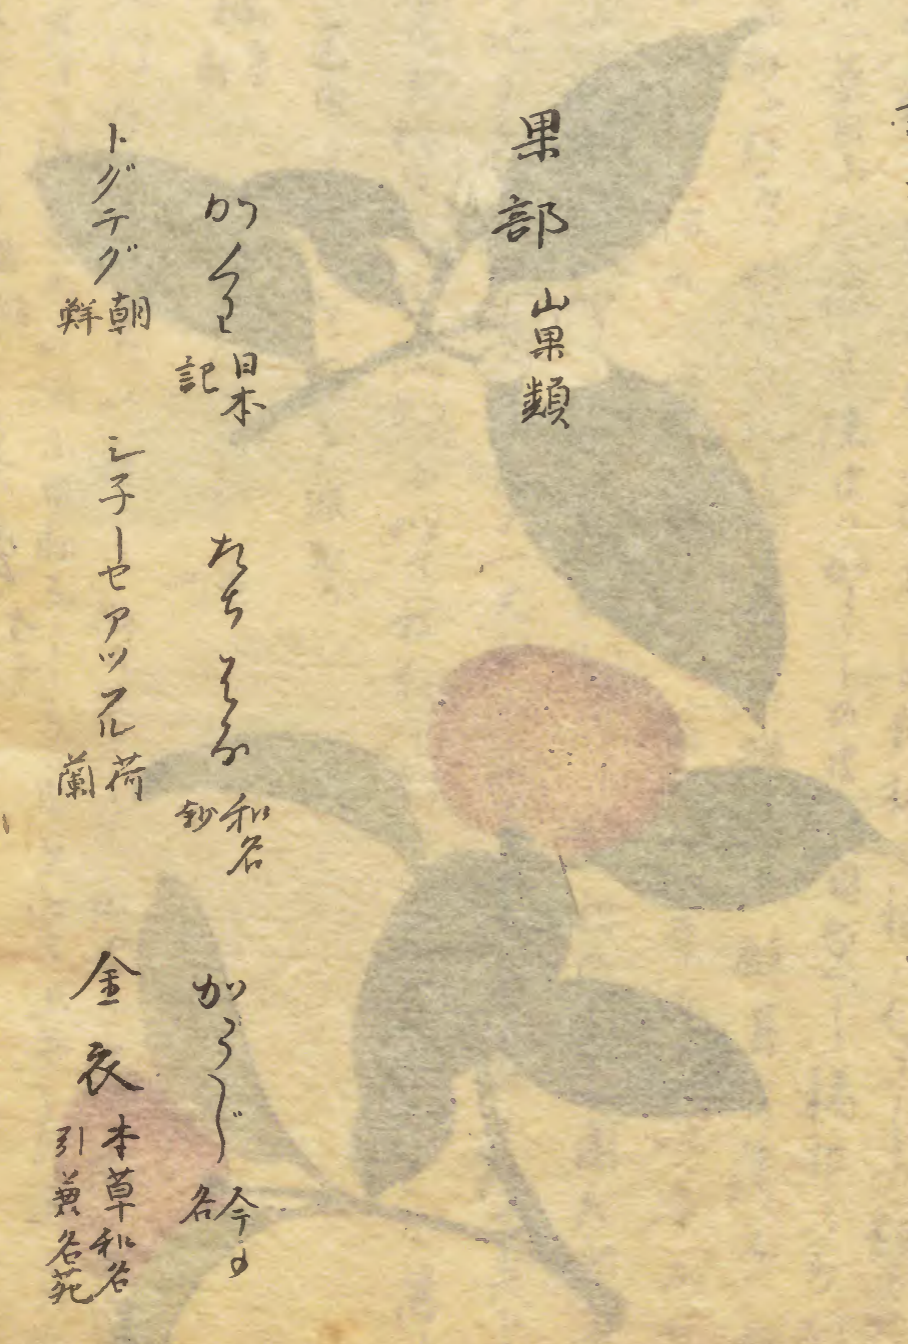 果部 山果類
かく 日本記 たちばな 和名鈔 かうじ 今の名
トグテグ 朝鮮 シ子ーセアツフル 荷蘭 金衣 本草和名引兼名苑